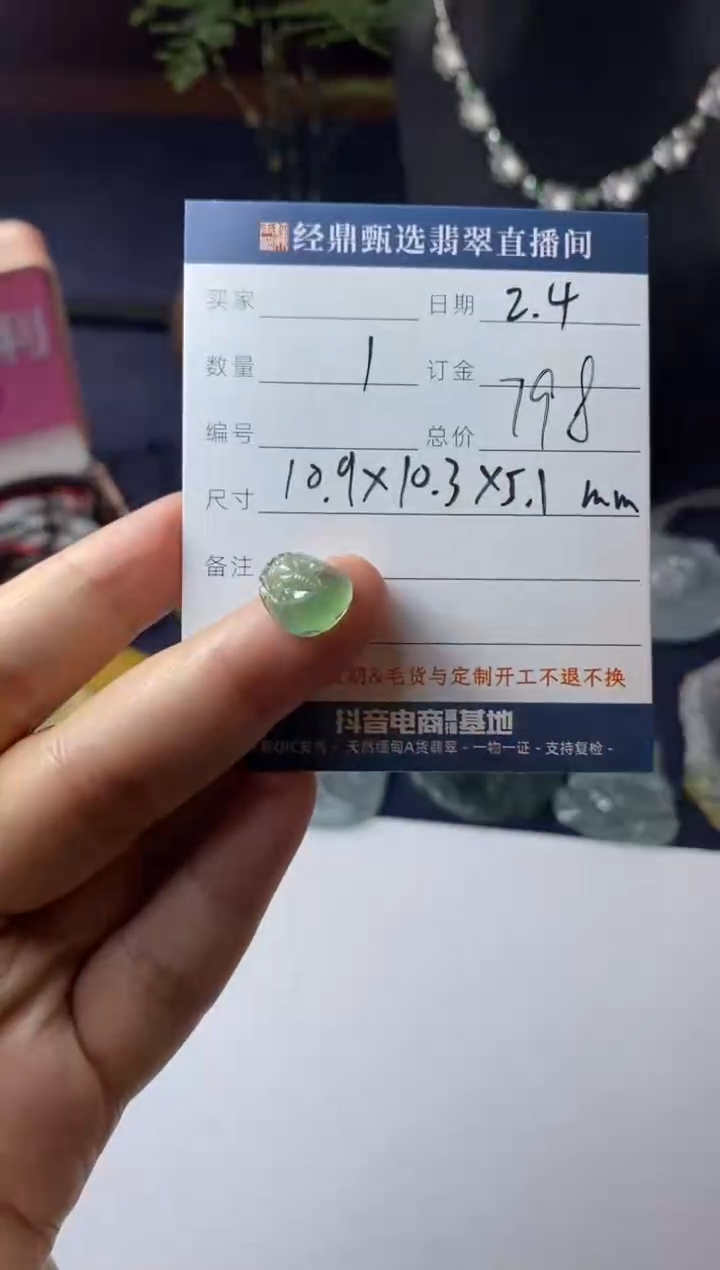 经鼎甄选翡翠直播间
买家 日期 2.4
数量 1 订金
编号 总价 798
尺寸 10.9×10.3×5.1 mm
备注
期&毛货与定制开工不退不换
抖音电商基地
天然缅甸A货翡翠 - 一物一证 - 支持复检 -
利